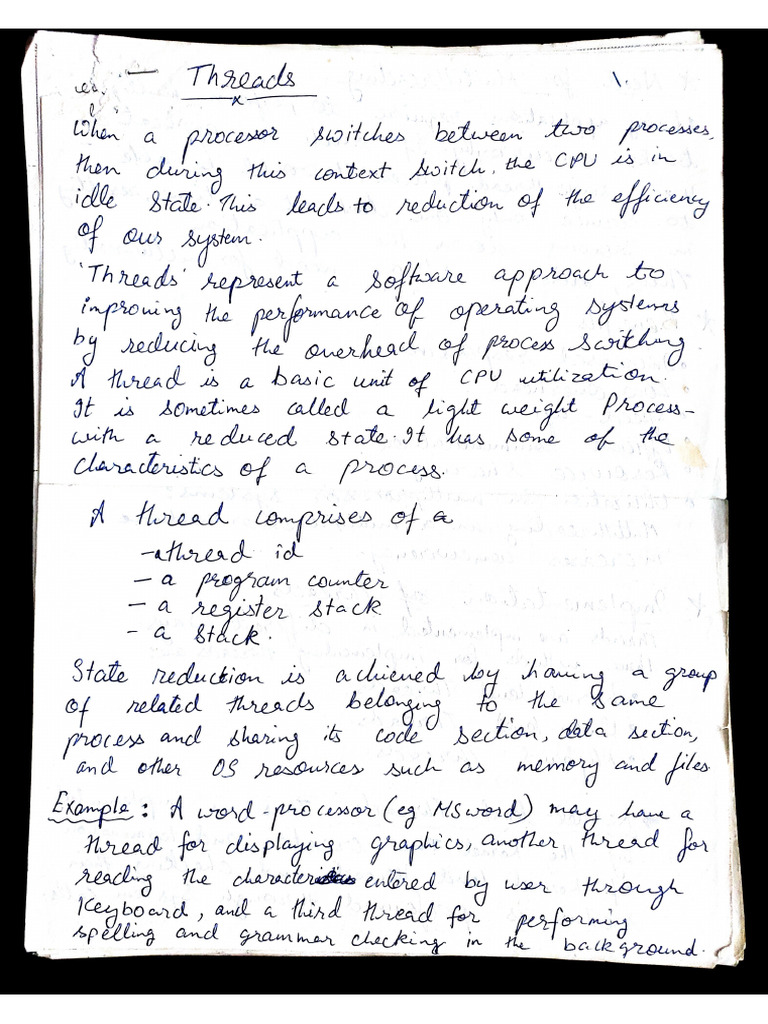 Threads
1.
When a processor switches between two processes,
then during this context switch, the CPU is in
idle state. This leads to reduction of the efficiency
of our system.
'Threads' represent a software approach to
improving the performance of operating systems
by reducing the overhead of process switching
A thread is a basic unit of CPU utilization.
It is sometimes called a light weight Process-
with a reduced state. It has some of the
characteristics of a process.
A thread comprises of a
- a thread id
- a program counter
- a register stack
- a stack.
State reduction is achieved by having a group
of related threads belonging to the same
process and sharing its code section, data section,
and other OS resources such as memory and files
Example: A word-processor (eg MS word) may have a
thread for displaying graphics, another thread for
reading the character entered by user through
Keyboard, and a third thread for performing
spelling and grammar checking in the background.